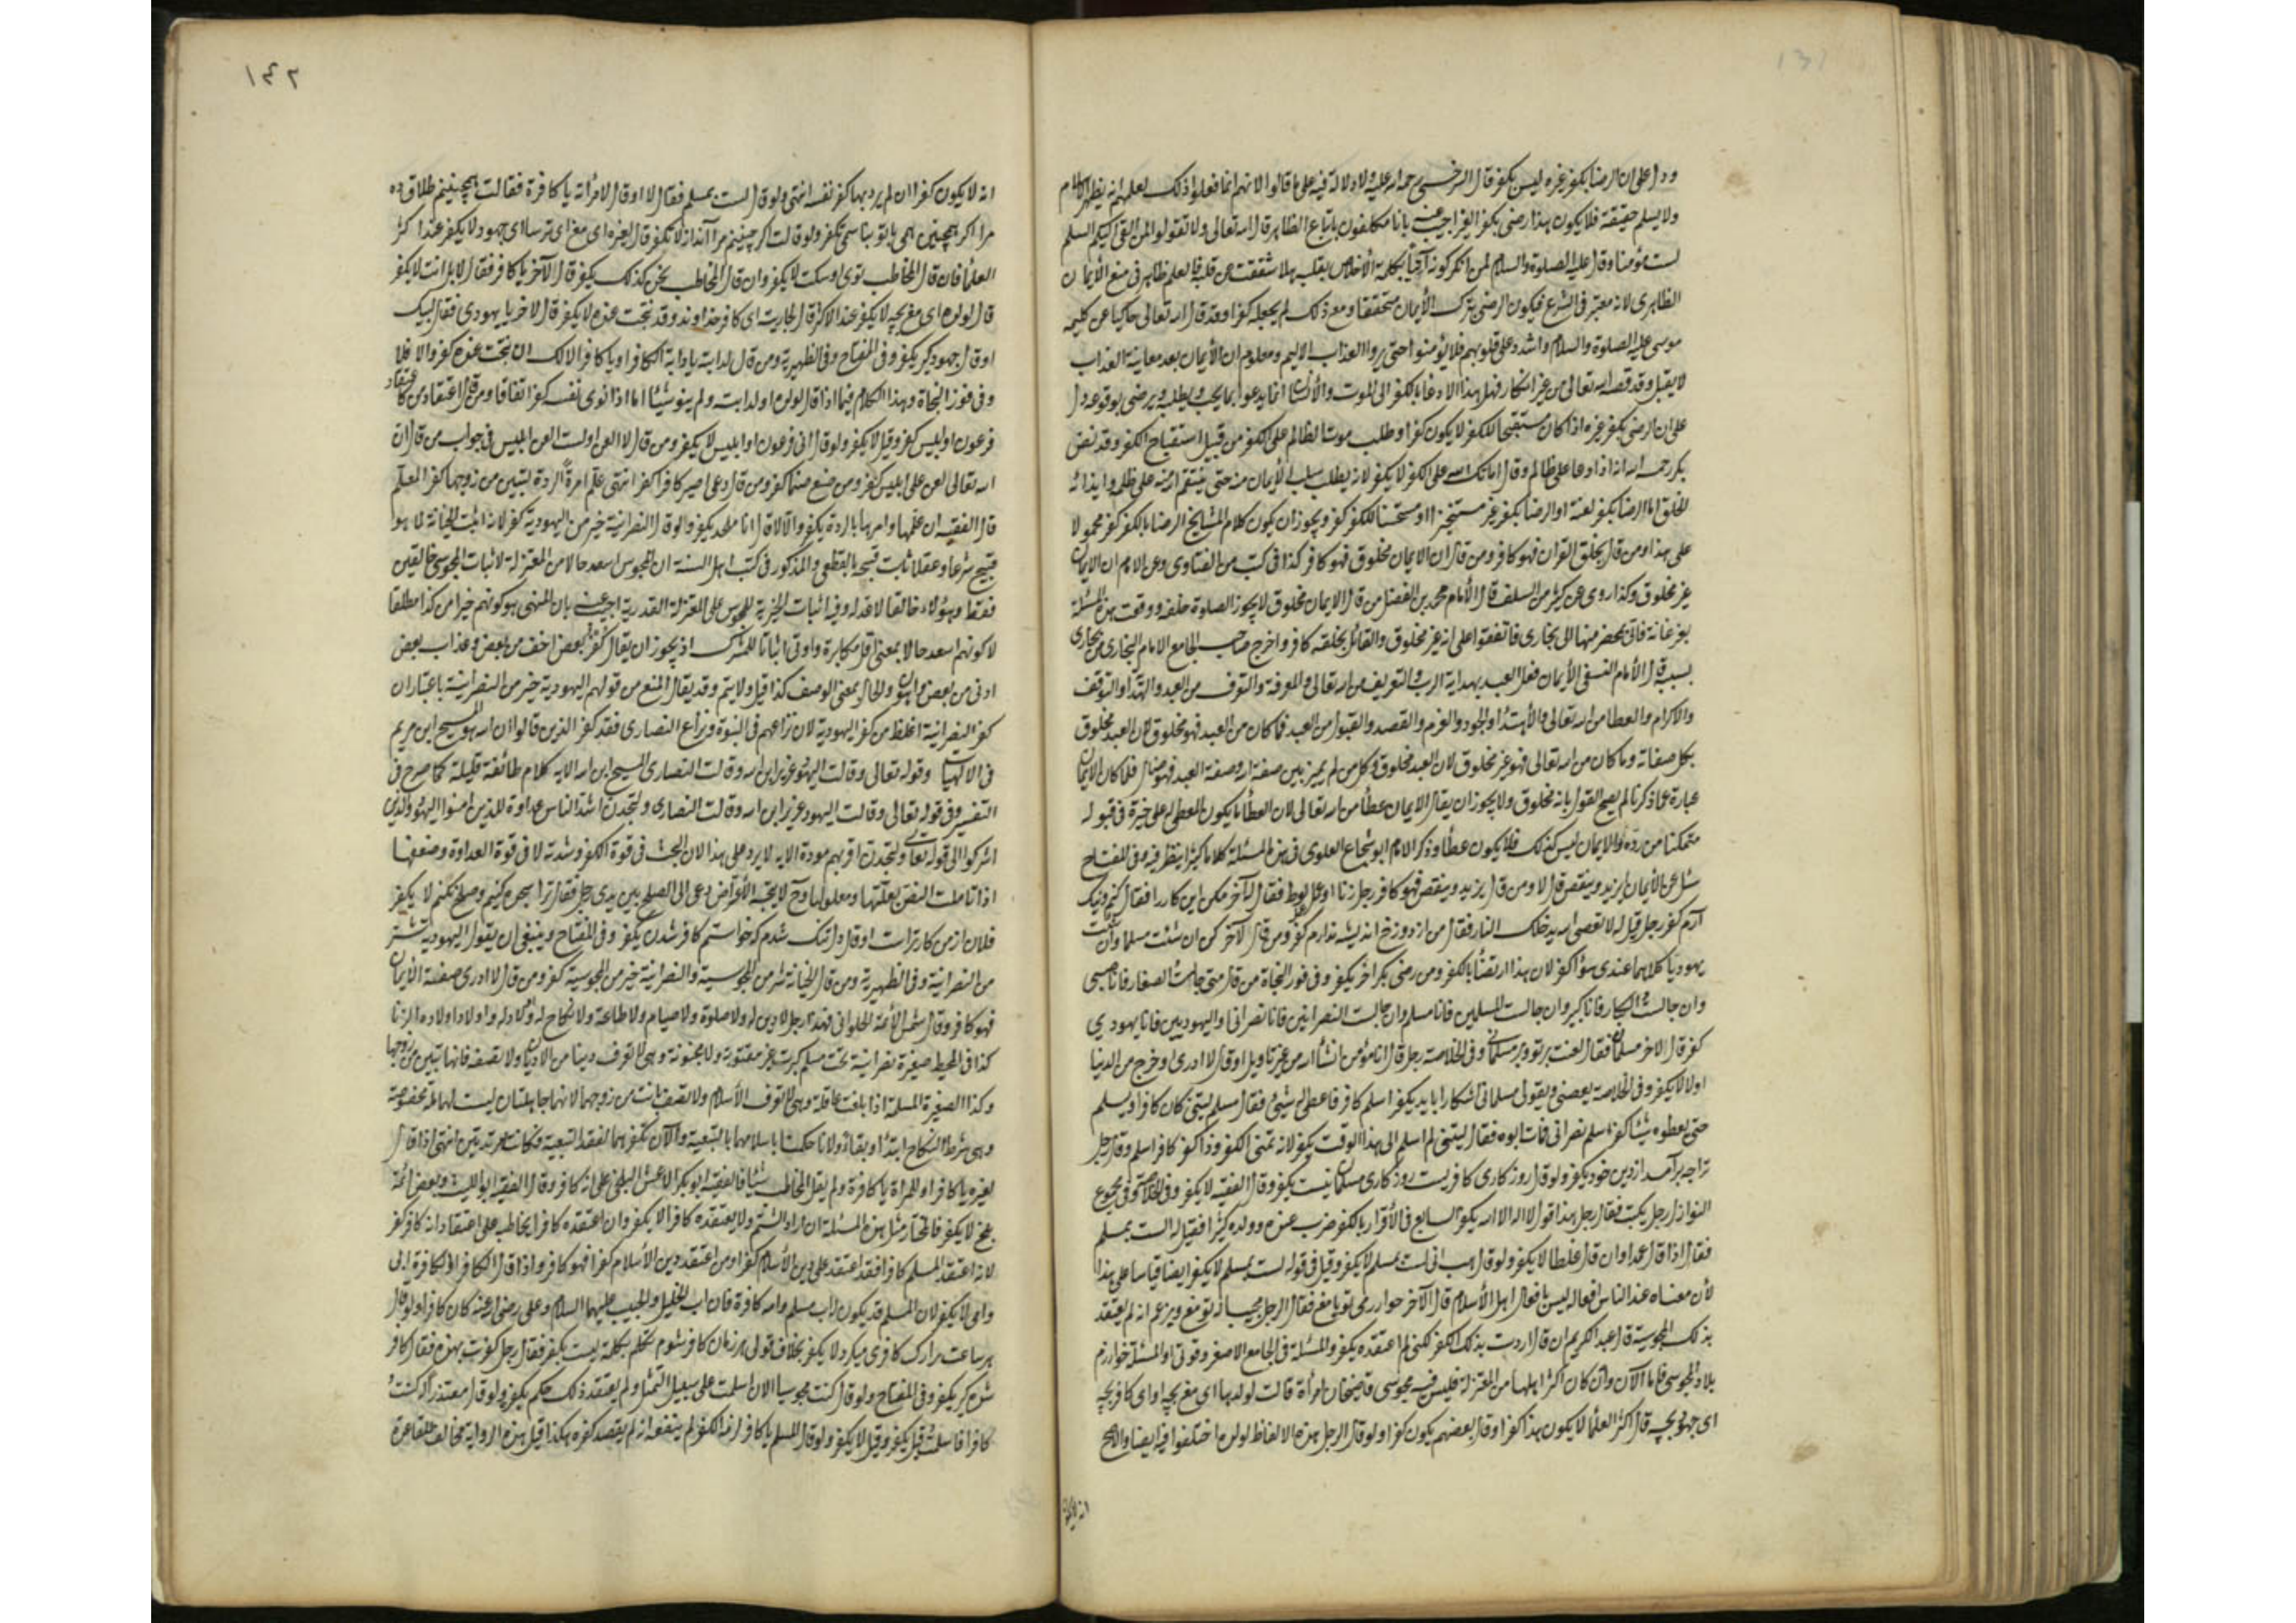 ودل على ان الرضا بكفر غيره ليس بكفر قال السرخسي رحمه الله عليه ولا دلالة فيه على ما قالوا لانهم انما فعلوا ذلك لعلمهم انه يظهر الاسلام
ولا يسلم حقيقة فلا يكون هذا رضى بكفر الغير اجيب عنه بانا مكلفون باتباع الظاهر قال الله تعالى ولا تقولوا لمن القى اليكم السلم
لست مؤمنا وقال عليه الصلوة والسلام لمن انكر كونه بكلمة الأخلاص بقلبه هلا شققت عن قلبه فالعلم ظاهر في منع الأيمان
الظاهري لانه معتبر في الشرع فيكون الرضى بترك الأيمان متحققا ومع ذلك لم يجعله كفرا وقد قال الله تعالى حاكيا عن كليمه
موسى عليه الصلوة والسلام واشدد على قلوبهم فلا يؤمنوا حتى يروا العذاب الاليم ومعلوم ان الأيمان بعد معاينة العذاب
لا يقبل وقد قصه الله تعالى من غير انكار فهل هذا الا دعا بالكفر الى الموت والأنسان انما يدعو بما يحب ويطلبه ويرضى بوقوعه دل
على ان الرضى بكفر غيره اذا كان مستقبحا للكفر لا يكون كفرا وطلب موت الظالم على الكفر من قبيل استقباح الكفر وقد نص
بكر رحمه الله انه اذا دعا على ظالم وقال اماتك الله على الكفر لا يكفر لانه يطلب سلب الأيمان منه حتى ينتقم الله منه على ظلمه وايذائه
الخلق اما الرضا بكفر نفسه او الرضا بكفر غيره مستخيرا او مستحسنا للكفر كفر ويجوز ان يكون كلام المشايخ الرضا بالكفر كفر محمولا
على هذا ومن قال بخلق القران فهو كافر ومن قال ان الايمان مخلوق فهو كافر كذا في كتب من الفتاوى وعن الامام ان الايمان
غير مخلوق وكذا روى عن كثير من السلف قال الأمام محمد بن الفضل من قال الايمان مخلوق لا يجوز الصلوة خلفه ووقعت هذه المسئلة
بفرغانة فاتى بمحضر منها الى بخارى فاتفقوا على انه غير مخلوق والقائل بخلقه كافر واخرج صاحب الجامع الامام البخاري من بخارى
بسببه قال الأمام النسفي الأيمان فعل العبد بهداية الرب والتعريف من الله تعالى والمعرفة والتعرف من العبد والهداء والتوفيق
والاكرام والعطا من الله تعالى والأهتداء والجهد والعزم والقصد والقبول من العبد فما كان من العبد فهو مخلوق لان العبد مخلوق
بكل صفاته وما كان من الله تعالى فهو غير مخلوق لان العبد مخلوق وكل من لم يميز بين صفة الله وصفة العبد فهو ضال فلما كان الايمان
عبارة عما ذكرنا لم يصح القول بانه مخلوق ولا يجوز ان يقال الايمان عطأ من الله تعالى لان العطأ ما يكون المعطى له على خيرة في قبوله
متمكنا من رده والايمان ليس كذلك فلا يكون عطأ وذكر الامام ابو شجاع العلوي في هذه المسئلة كلاما كثيرا ينظر فيه وفي المفتاح
سئل عن الأيمان ايزيد وينقص قال لا ومن قال يزيد وينقص فهو كافر رجل زنا او عمل لوط فقال له آخر مكن اين كار را فقال كنم ونيك
آرم كفر رجل قيل له لا تعصى الله يدخلك النار فقال من از دوزخ انديشه ندارم كفر ومن قال لآخر كن ان شئت مسلما وان شئت
يهوديا كلاهما عندي سوأ كفر لان هذا ارتضأ بالكفر ومن رضى بكفر اخر يكفر وفي فوز النجاة من قال متى جالست الصغار فانا صبي
وان جالست الكبار فانا كبير وان جالست المسلمين فانا مسلم وان جالست النصرانيين فانا نصراني او اليهوديين فانا يهودي
كفر قال لاخر مسلمان فقال لعنت بر تو وبر مسلماني وفي الخلاصة رجل قال انا مؤمن انشأ الله من غير تاويل او قال لا ادري اخرج من الدنيا
اولا لا يكفر وفي الخلاصة ويقول مسلماني اشكارا بايد يكفر اسلم كافر فاعطى له شئ فقال مسلم ليتني كان كافرا ويسلم
حتى يعطوه شيئا كفر اسلم نصراني فمات ابوه فقال ليتني لم اسلم الى هذا الوقت يكفر لانه تمنى الكفر وذا كفر كافر اسلم وقال رجل
ترا چه بر آمد از دين خود يكفر ولو قال روز كاري كافريست روز كاري مسلماني نيست يكفر وقال الفقيه لا يكفر وفي الخلاصة وفي مجموع
النوازل رجل يكتب فقال رجل هذا قول لا اله الا الله يكفر السابع في الأقرار بالكفر ضرب عبده وولده كثيرا فقيل له الست بمسلم
فقال اذا قال عمدا وان قال غلطا لا يكفر ولو قال هب اني لست بمسلم لا يكفر وقيل في قوله لست بمسلم لا يكفر ايضا قياسا على هذا
لأن معناه عند الناس افعاله ليس بافعال اهل الأسلام قال لآخر تو يا مغ فقال الرجل مجيبا تو مغ ويزعم انه لم يعتقد
بذلك المجوسية قال عبد الكريم ان قال اردت بذلك الكفر لكني لم اعتقده يكفر والمسئلة في الجامع الاصغر وقوتى او المسئلة خوارزم
بلاد المجوسي فاما الآن وان كان اكثر اهلها من المعتزلة فليس فيه مجوسي قاضيخان امرأة قالت لولدها اي مغ بچه او اي كافر بچه
اي جهود بچه قال اكثر العلما لا يكون هذا كفرا وقال بعضهم يكون كفرا ولو قال الرجل هذه الالفاظ لولده اختلفوا فيه ايضا والاصح
انه لا يكون
١٤٢
انه لا يكون كفرا ان لم يرد بها كفر نفسه انتهى ولو قال لست بمسلم فقال لا او قال لامرأته يا كافرة فقالت همچنينم طلاق ده
مرا اكر همچنين نمى با تو نباشمى تكفر ولو قالت اكر چنينم مرا لا تكفر قال لغيره اي مغ اي ترسا اي جهود لا يكفر عند اكثر
العلمأ فان قال المخاطب توى او سكت لا يكفر وان قال المخاطب نحن كذلك يكفر قال لآخر يا كافر فقال لا بل انت لا يكفر
قال لولده اي مغ بچه لا يكفر عند الاكثر قال لجاريته اي كافر خداوند وقد نتجت عنده لا يكفر قال لاخر يا يهودي فقال لبيك
او قال جهود كير يكفر وفي المفتاح وفي الظهيرية ومن قال لدابته يا دابة الكافر او يا كافر المالك ان نتجت عنده كفر والا فلا
وفي فوز النجاة وهذا الكلام فيما اذا قال لولده او لدابته ولم ينو شيئا اما اذا نوى نفسه كفر اتفاقا ومن قال اعتقادى كاعتقاد
فرعون او ابليس كفر وقيل لا يكفر ولو قال اني فرعون او ابليس لا يكفر ومن قال لا العن او لست العن ابليس في جواب من قال ان
الله تعالى لعن على ابليس كفر ومن صنع صنما كفر ومن قال دعني اصير كافرا كفر انتهى علم امرأة الردة لتبين من زوجها كفر المعلم
قال الفقيه ان علمها وامرها بالردة يكفر والا لا قال انا ملحد يكفر ولو قال النصرانية خير من اليهودية كفر لانه اثبت الخيرية لما هو
قبيح شرعا وعقلا ثابت قبحه بالقطعي والمذكور في كتب اهل السنة ان المجوس اسعد حالا من المعتزلة لاثبات المجوسي خالقين
فقط وهؤلاء خالقا لا عدله وفيه اثبات الخيرية للمجوس على المعتزلة القدرية اجيب عنه بان المنهى هو كونهم خيرا من كذا مطلقا
لا كونهم اسعد حالا بمعنى اقل مكابرة وادنى اثباتا للشرك اذ يجوز ان يقال كفر بعض اخف من بعض وعذاب بعض
ادنى من بعض واهون والحال بمعنى الوصف كذا قيل ولا يتم وقد يقال المنع من قولهم اليهودية خير من النصرانية باعتبار ان
كفر النصرانية اغلظ من كفر اليهودية لان نزاعهم في النبوة ونزاع النصارى فقد كفر الذين قالوا ان الله هو المسيح ابن مريم
في الالهيات وقوله تعالى وقالت اليهود عزير ابن الله وقالت النصارى المسيح ابن الله الاية كلام طائفة قليلة كما صرح في
التفسير وفي قوله تعالى وقالت اليهود عزير ابن الله وقالت النصارى ولتجدن اشد الناس عداوة للذين امنوا اليهود والذين
اشركوا الى قوله تعالى ولتجدن اقربهم مودة الايه لا يرد على هذا لان البحث في قوة الكفر وشدته لا في قوة العداوة وضعفها
اذا تاملت النص بعلتها ومعلولها وح لا يتجه الأعتراض دعى الى الصلح بين يدى رجل فقال ترا سجده كنيم وصلح نكنم لا يكفر
فلان از من كافرتراست او قال دلتنك شدم كه خواستم كافر شدن يكفر وفي المفتاح وينبغي ان يقول اليهودية شر
من النصرانية وفي الظهيرية ومن قال الخيانة شر من المجوسية والنصرانية خير من المجوسية كفر ومن قال لا ادري صفة الأيمان
فهو كافر وقال شمس الأئمة الحلواني فهذا رجل لا دين له ولا صلوة ولا صيام ولا طاعة ولا نكاح له واولاده اولاد الزنا
كذا في المحيط صغيرة نصرانية تحت مسلم كبرت غير معتوهة ولا مجنونة وهي لا تعرف دينا من الاديان ولا تصفه فانها تبين من زوجها
وكذا الصغيرة المسلمة اذا بلغت عاقلة وهي لا تعرف الأسلام ولا تصفه بانت من زوجها لانهما جاهلتان ليست لهما ملة مخصوصة
وهي شرط النكاح ابتدأ وبقاء ولانا حكمنا باسلامهما بالتبعية والآن نكفر بهما لفقد التبعية فكانتا مرتدتين انتهى اذا قال
لغيره يا كافر او للمرأة يا كافرة ولم يقل المخاطب شيئا فالفقيه ابو بكر الاعمش البلخي على انه كافر وقال الفقيه ابو الليث وبعض ائمة
بلخ لا يكفر فالمختار مثل هذه المسئلة ان اراد الشتم ولا يعتقده كافرا لا يكفر وان اعتقده كافرا يخاطبه على اعتقاد انه كافر كفر
لانه اعتقد المسلم كافرا فقد اعتقد على دين الأسلام كفرا ومن اعتقد دين الاسلام كفرا فهو كافر واذا قال الكافر او الكافرة ابى
وامى لا يكفر لان المسلم قد يكون له اب مسلم وامه كافرة فان اب الخليل والحبيب عليهما السلام وعلى رضى الله عنه كان كافرا ولو قال
هر ساعت مرا رك كافرى ميكرد لا يكفر بخلاف قولي هر زمان كافر شوم تكلم بكلمة ليست بكفر فقال رجل كفرت بهذه فقال كافر
شده كير يكفر وفي المفتاح ولو قال كنت مجوسيا الان اسلمت على سبيل التمثل ولم يعتقد ذلك حكم بكفره ولو قال معتذرا كنت
كافرا فاسلمت قيل يكفر وقيل لا يكفر ولو قال للمسلم يا كافر لزمه الكفر لم ينفعه انه لم يقصد كفره هكذا قيل هذه الرواية مخالف